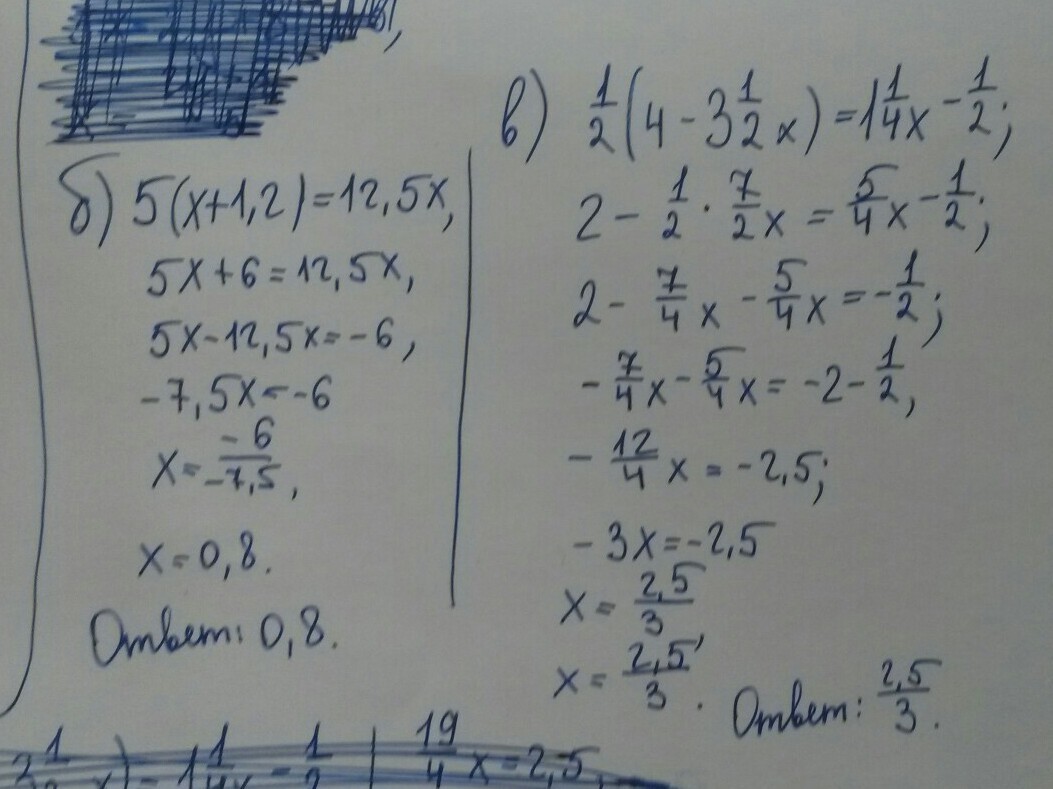 б) 5(x+1,2)=12,5x,
5x+6=12,5x,
5x-12,5x=-6,
-7,5x=-6
x=-6/-7,5,
x=0,8.
Ответ: 0,8.
в) 1/2(4-3 1/2x)=1 1/4x-1/2;
2-1/2·7/2x=5/4x-1/2;
2-7/4x-5/4x=-1/2;
-7/4x-5/4x=-2-1/2,
-12/4x=-2,5;
-3x=-2,5
x=2,5/3,
x=2,5/3.
Ответ: 2,5/3.
19/4x=2,5